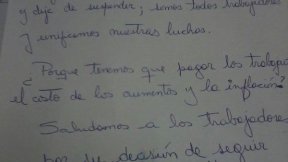 y deje de suspender; somos todos trabajadores
y unificamos nuestras luchas.
¿Porque tenemos que pagar los trabajador
el costo de los aumentos y la inflación?
Saludamos a los trabajadores
por su decisión de seguir